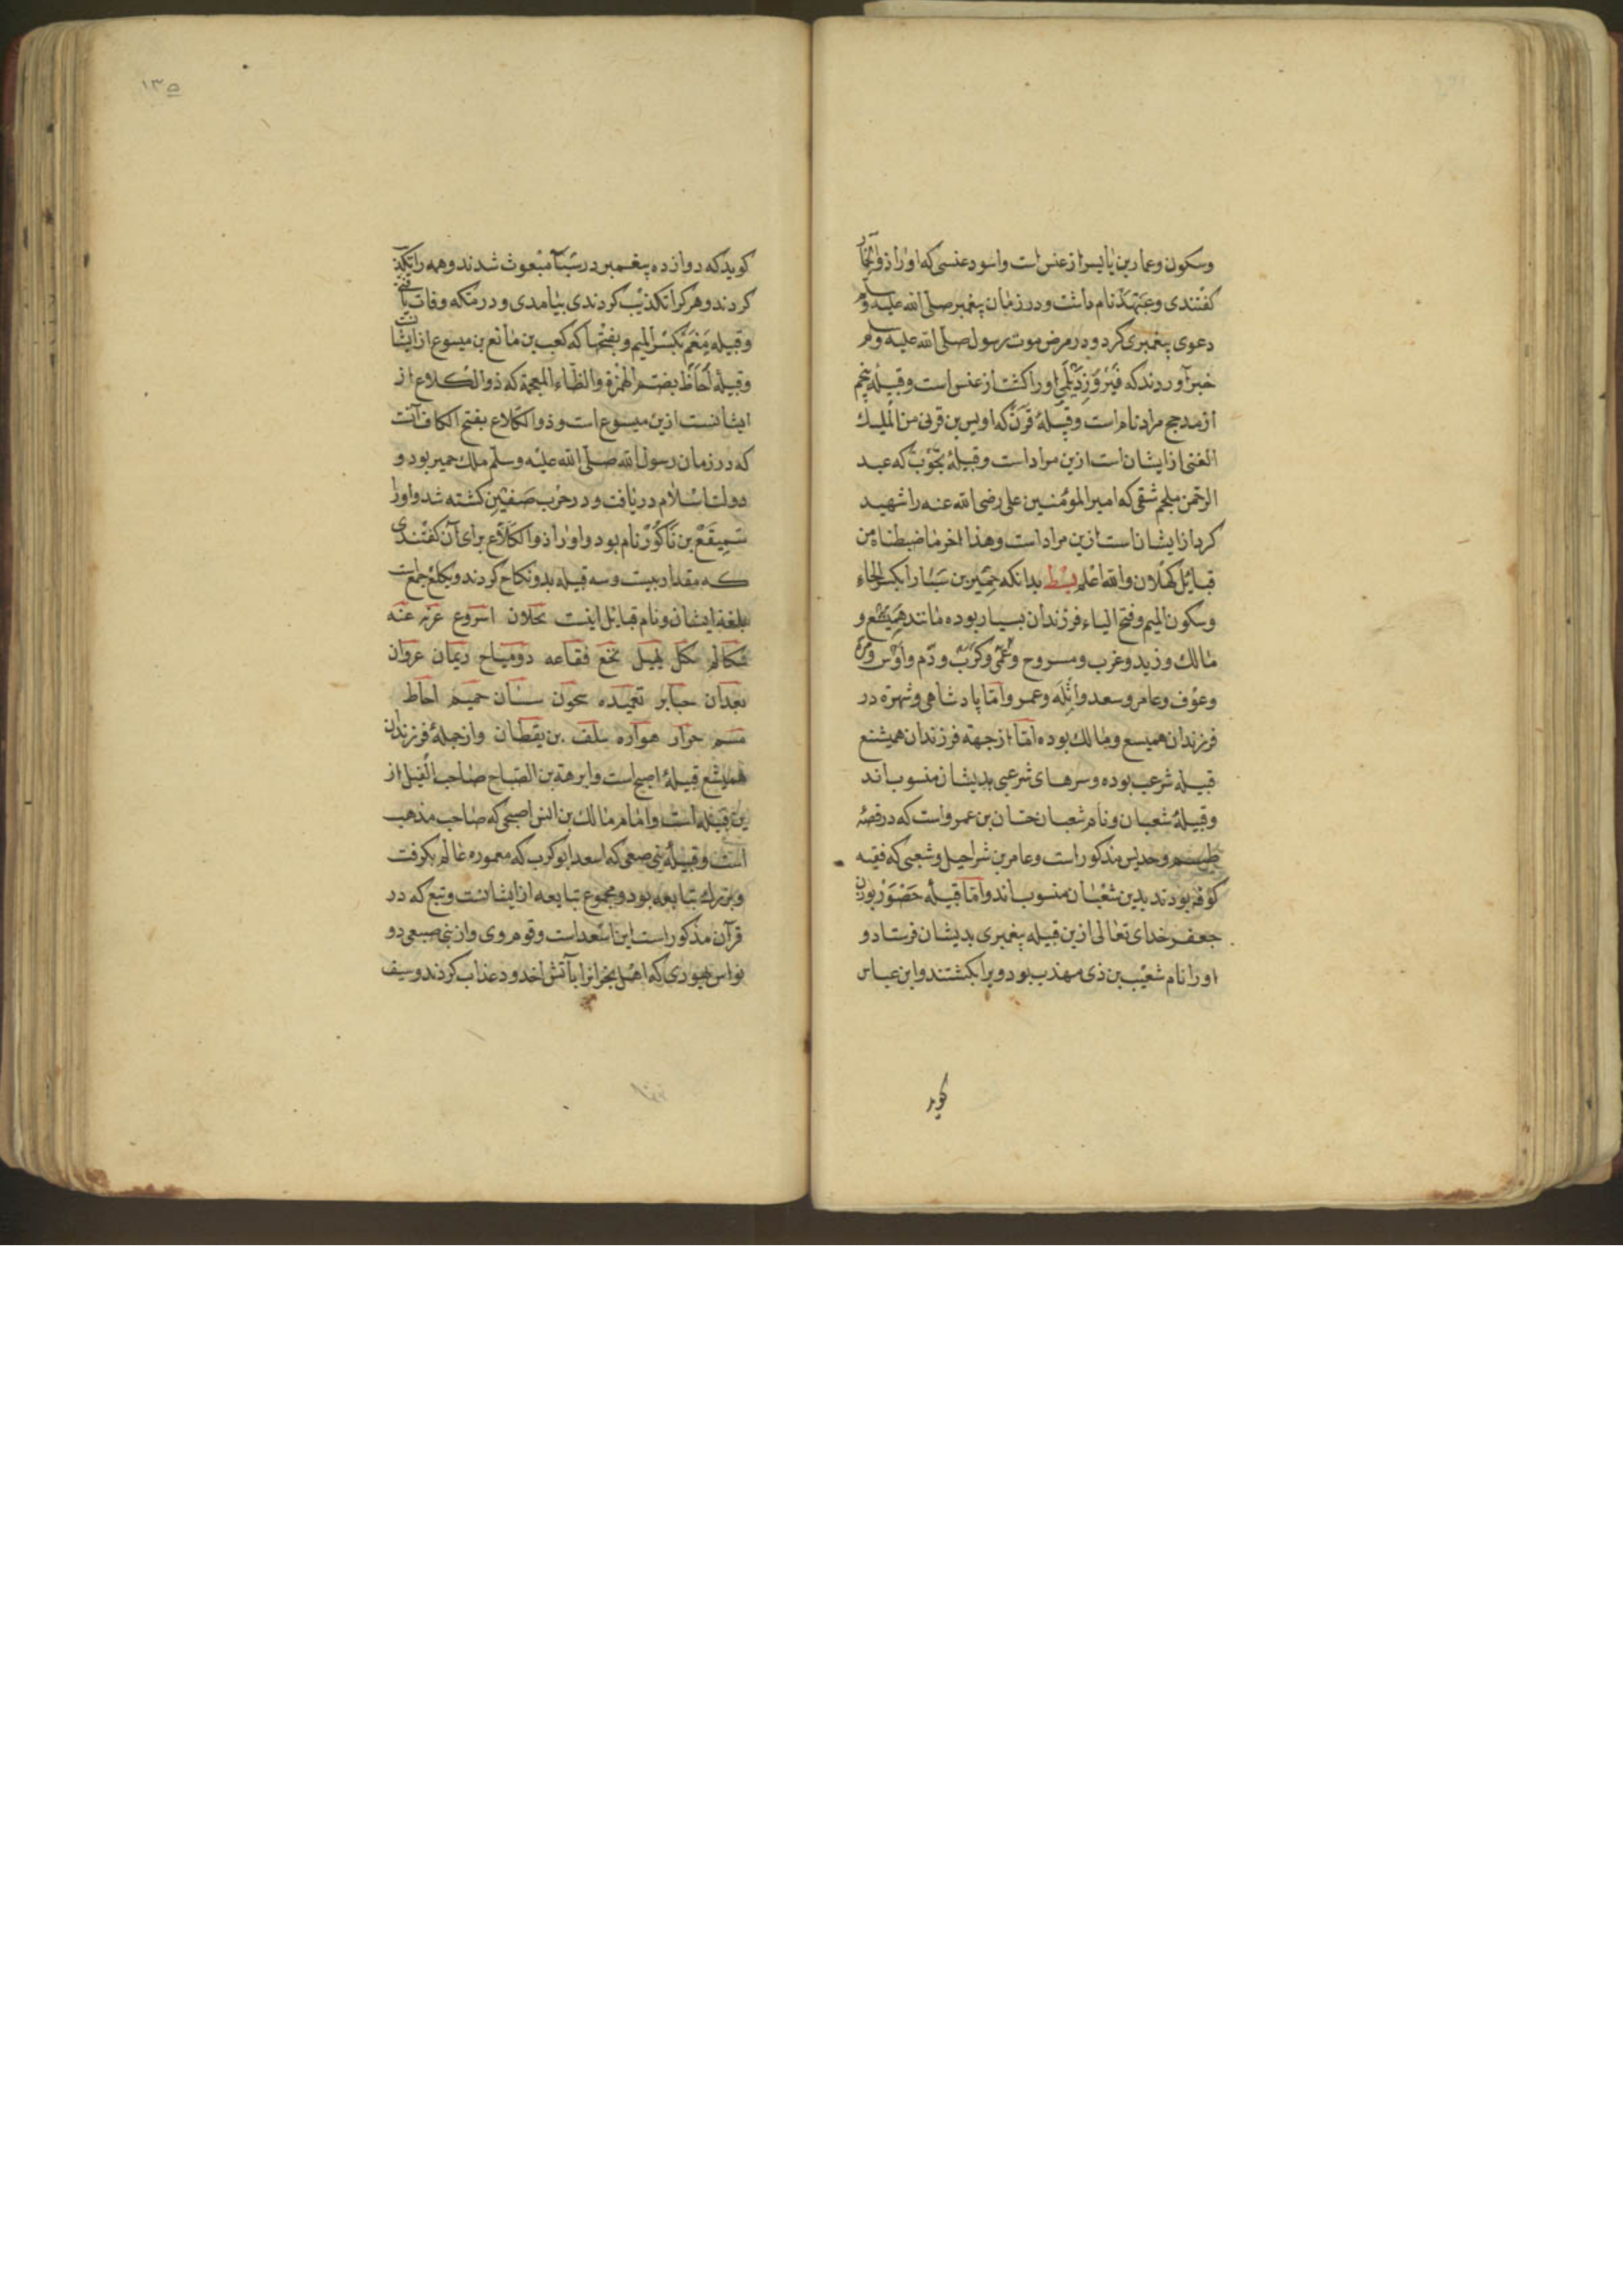 وسکون وعمار بن یاسر از عنس است واسود عنسی که اورا ذوالخمار
کفتندی وعبهله نام داشت ودر زمان پیغمبر صلی الله علیه وسلم
دعوی پیغمبری کرد ودر مرض موت رسول صلی الله علیه وسلم
خبر آوردند که فیروز دیلمی اورا کشت از عنس است وقبیلهٔ پنجم
از مذحج مراد نام است وقبیلهٔ قرن که اویس بن قرنی من الملیك
الغنی از ایشان است ازین مراد است وقبیلهٔ تجوب که عبد
الرحمن ملجم شقی که امیر المؤمنین علی رضی الله عنه را شهید
کرد از ایشان است ازین مراد است وهذا اخر ما ضبطناه من
قبایل کهلان والله اعلم بسط بدانکه حمیر بن سبا را بکسر الحاء
وسکون المیم وفتح الیاء فرزندان بسیار بوده مانند همیسع و
مالك وزید وعرب ومسروح وعمی وکرب ودم واوس ومره
وعوف وعامر وسعد واثله وعمرو اما پادشاهی وشهرة در
فرزندان همیسع ومالك بوده اما از جهة فرزندان همیشع
قبیله شرعب بوده وسرهای شرعبی بدیشان منسوب اند
وقبیلهٔ شعبان ونام شعبان حسان بن عمرو است که در قصهٔ
طسم وجدیس مذکور است وعامر بن شراحیل وشعبی که فقیه
کوفه بودند بدین شعبان منسوب اند واما قبیلهٔ حضور بودن
جعفر خدای تعالی ازین قبیله پیغمبری بدیشان فرستاد و
اورا نام شعیب بن ذی مهذب بود ویرا بکشتند وابن عباس
کوید
۱۳۵
کوید که دوازده پیغمبر در سبا مبعوث شدند وهمه را تکذیب
کردند وهر کرا تکذیب کردندی بیامدی ودر مکه وفات یافتی
وقبیله میغم بکسر المیم وبفتحها که کعب بن مانع بن میسوع از ایشان
وقبیله احاظ بضم الهمزة والظاء المعجمة که ذوالکلاع از
ایشانست ازین میسوع است وذوالکلاع بفتح الکاف آنست
که در زمان رسول الله صلی الله علیه وسلم ملك حمیر بود و
دولت اسلام دریافت ودر حرب صفین کشته شد واورا
سمیقع بن ناکور نام بود واورا ذوالکلاع برای آن کفتندی
که مقدار بیست وسه قبیله بدو نکاح کردند وتکلع جمع است
بلغة ایشان ونام قبایل اینست نحلان اسروع عنه
نخع فقاعه دومیاح ریمان عروان
بعدان جبابر سحون سنان حمیم احاظ
حرار هواره سلف بن یقطان واز جملهٔ فرزندان
همیشع قبیلهٔ اصبح است وابرهة بن الصباح صاحب الفیل از
ین قبیله است وامام مالك بن انس اصبحی که صاحب مذهب
است وقبیلهٔ بنی صیفی که اسعد ابوکرب که معموره عالم بکرفت
وبزرك تبایعه بود ومجموع تبایعه از ایشانست وتبع که در
قرآن مذکور است این اسعد است وقوم وی واز بنی صیفی ذو
نواس یهودی که اهل نجران را بآتش اخدود عذاب کردند وسیف